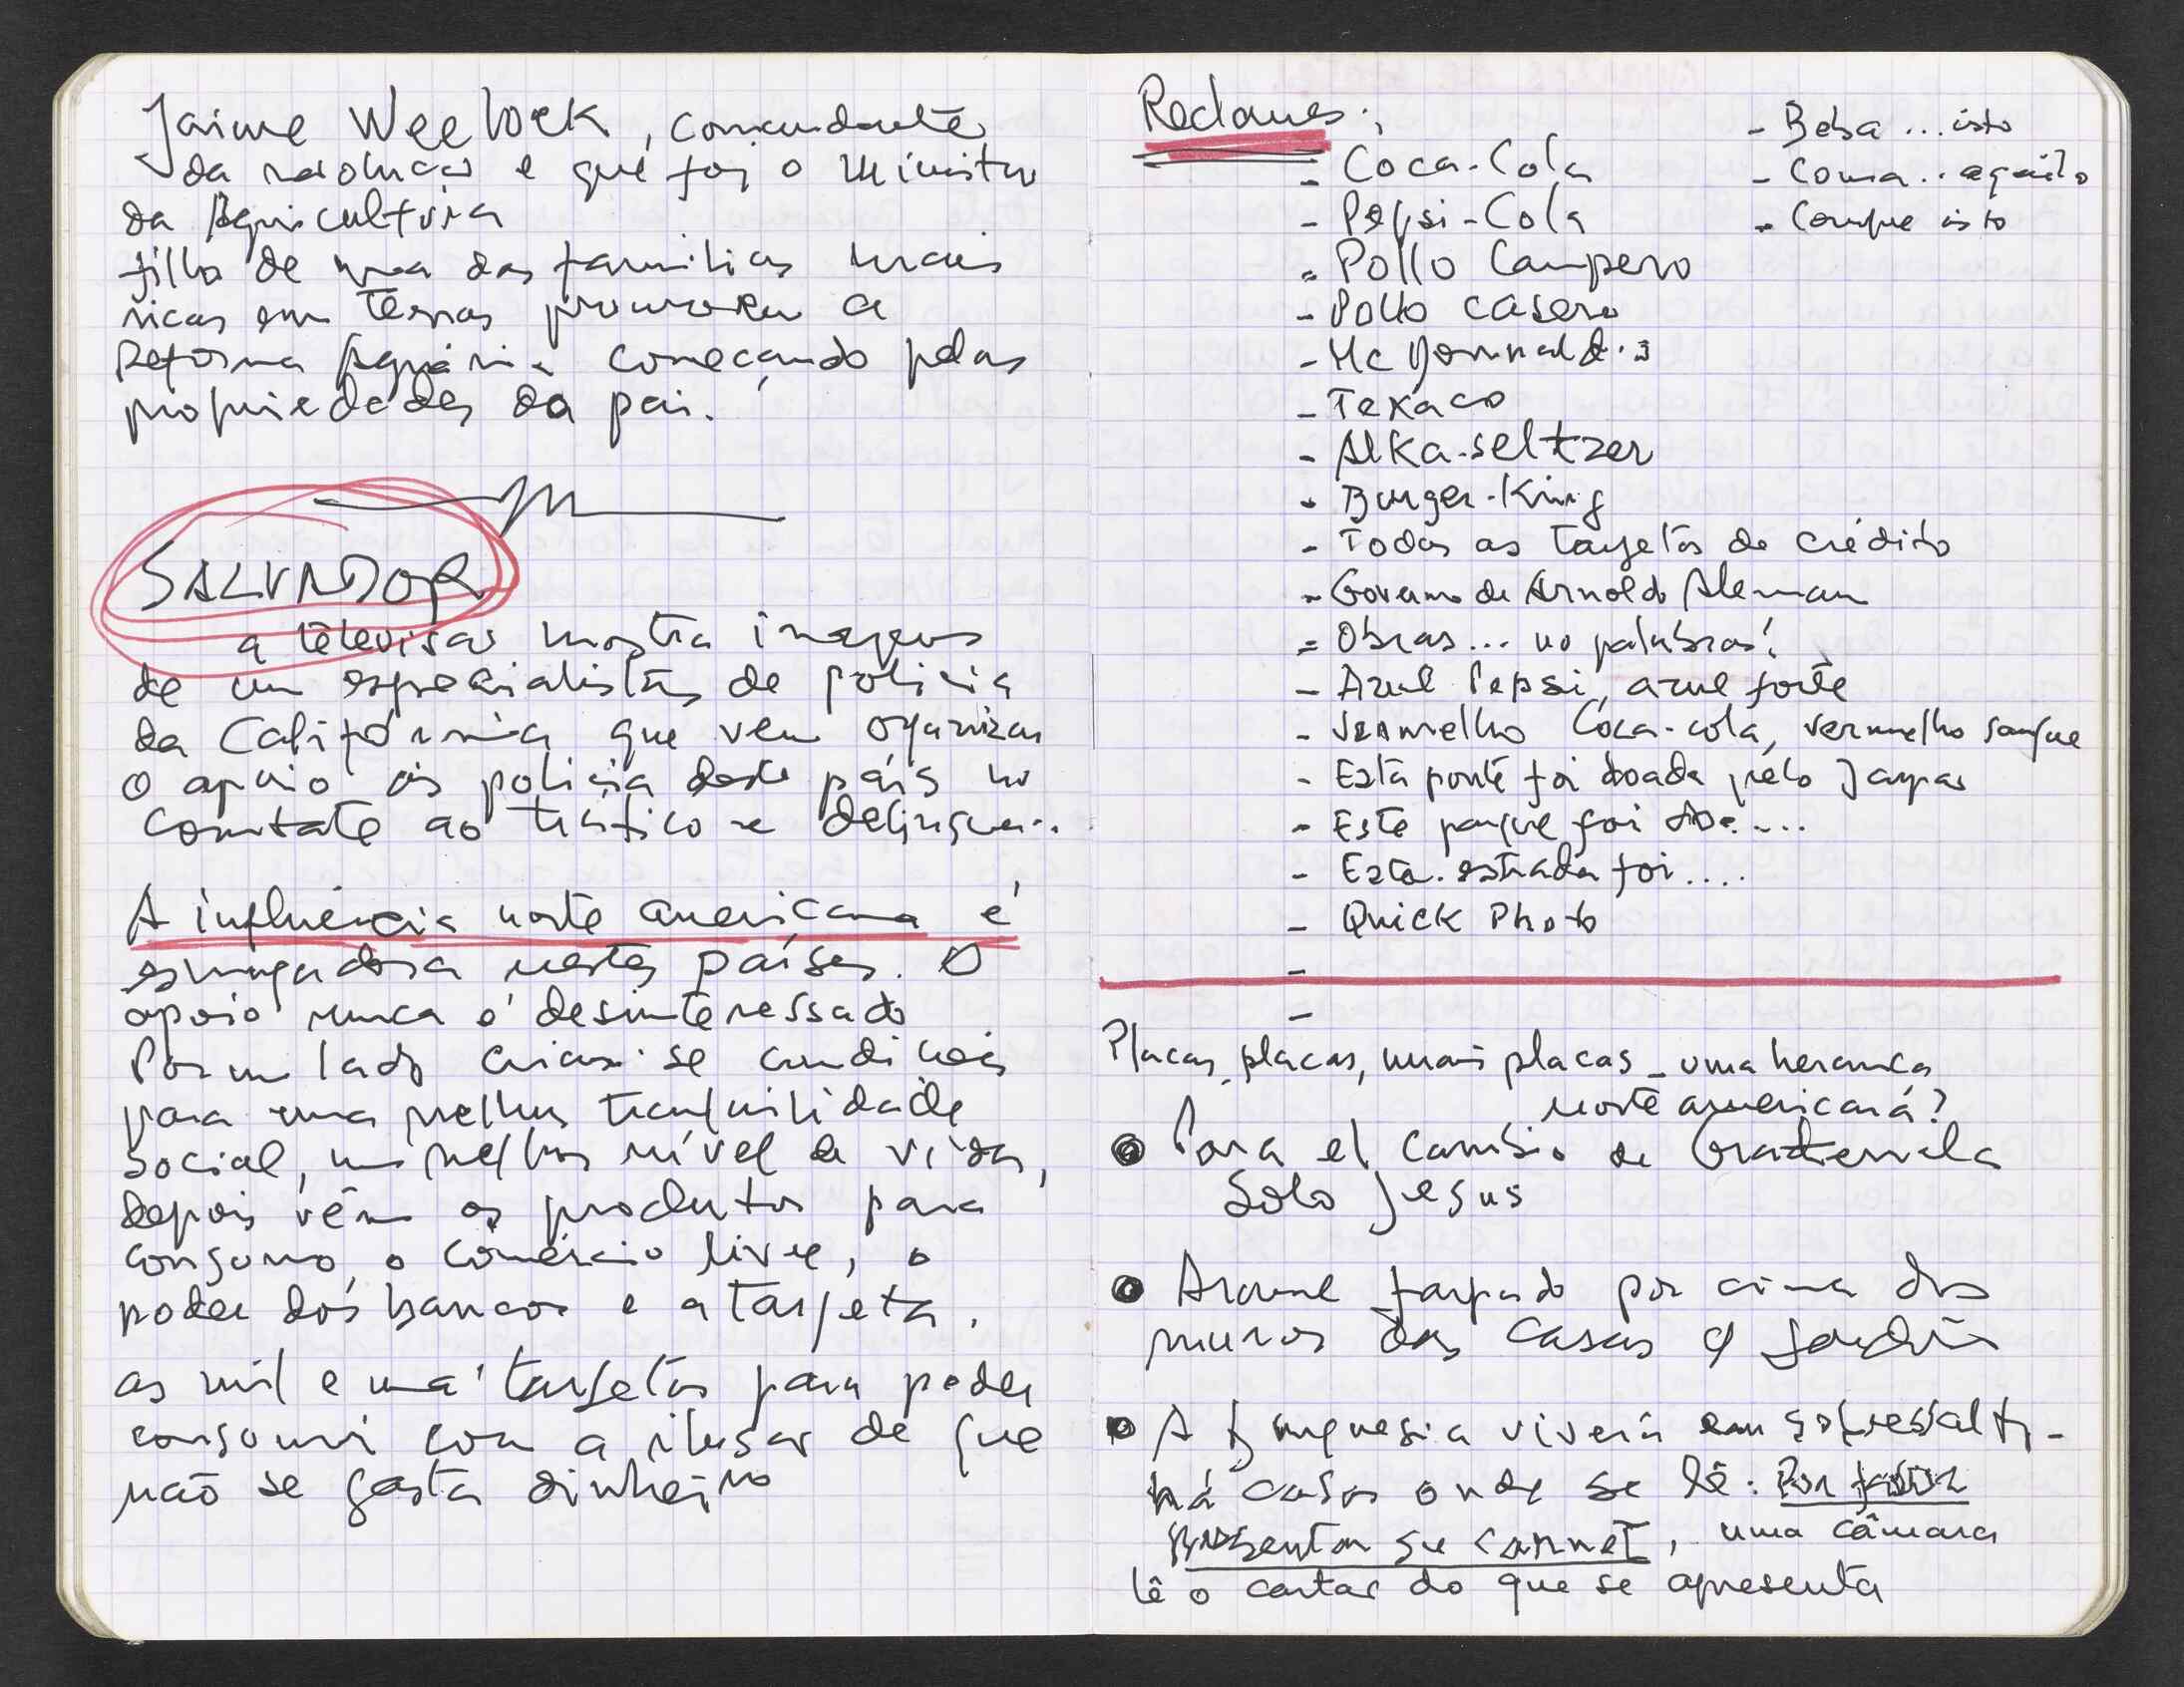 Jaime Weelock, comandante
da revolução e que foi o Ministro
da Agricultura
filho de uma das familias mais
ricas em terras promoveu a
Reforma Agrária começando pelas
propriedades da pai.
SALVADOR
a televisão mostra imagens
de um especialistas de policia
da Califórnia que vem organizar
o apoio ás policia deste país no
combate ao tráfico e
A influência norte americana é
esmagadora nestes países. O
apoio nunca é desinteressado
Por um lado criam-se condições
para uma melhor tranquilidade
social, um melhor nível de vida,
depois vêm os produtos para
consumo, o comércio livre, o
poder dos bancos e a tarjeta,
as mil e uma tarjetas para poder
consumir com a ilusão de que
não se gasta dinheiro
Reclames:
- Coca-Cola
- Pepsi-Cola
- Pollo Campero
- Pollo Casero
- Mc Donnald's
- Texaco
- Alka-seltzer
- Burger-King
- Todas as tarjetas de crédito
- Governo de Arnoldo Aleman
- Obras... no palabras!
- Azul Pepsi, azul forte
- Vermelho Coca-cola, vermelho sangue
- Esta ponte foi doada pelo Japão
- Este parque foi ....
- Esta estrada foi....
- Quick Photo
-
-
- Beba ... isto
- Coma .. aquilo
- Compre isto
Placas, placas, mais placas - uma herança
norte americana?
● Para el cambio de Guatemala
Solo Jesus
● Arame farpado por cima dos
muros das casas e jardins
● A burguesia viverá em sobressalto -
há casas onde se lê: Por favor
presentar su carnet, uma câmara
lê o cartão do que se apresenta